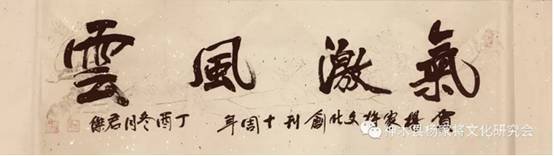 氣激風雲
賀楊家将文化創刊十周年 丁酉冬月君傑
神木县杨家将文化研究会